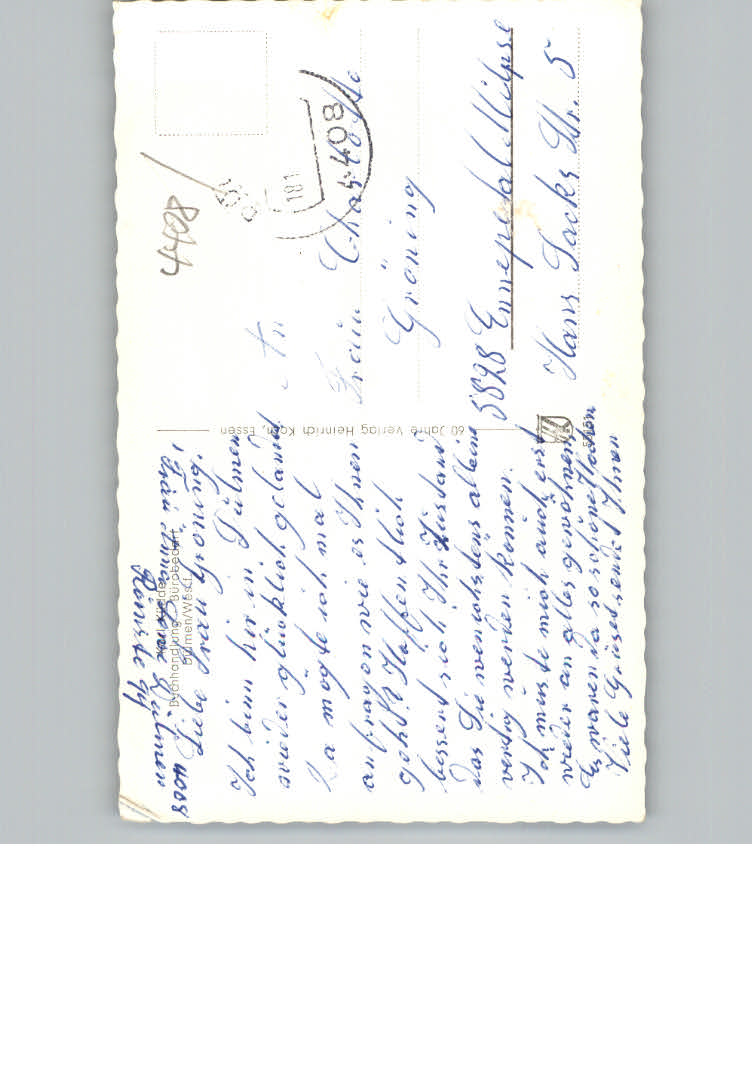 Liebe Frau Gröning.
Ich binn hir in Dülmen
wieder glücklich gelandet
Da mögte ich mal
anfragen wie es Ihnen
geht. Haffentlich
bessert sich Ihr Zustand
das Sie wenichstens alleine
vertig werden können.
Ich muste mich auch erst
wieder an alles gewöhnen
Es waren da so schöne
Viele Grüsse sendet Ihnen
Frau Anna
Dülmen
Buchhandlung - Bürobedarf
Dülmen/Westf.
60 Jahre Verlag Heinrich Koen, Essen
4408
181
4408
An
Frau Charlotte
Gröning
5828 Ennepetal Milspe
Hans Sacks Str. 5